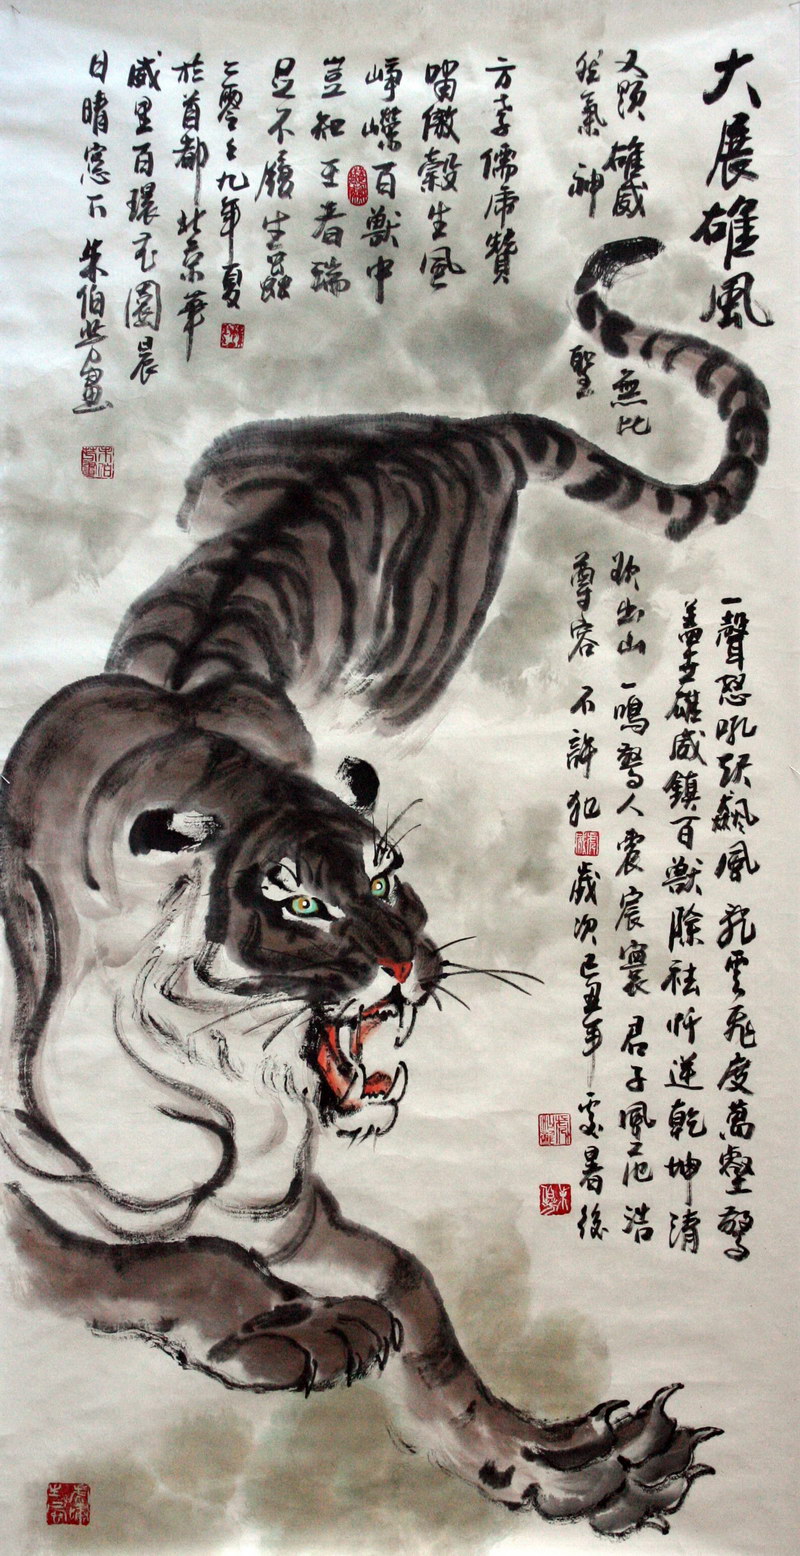 大展雄風
一聲怒吼 飆風 雲飛度萬壑驚
蓋世雄威鎮百獸除祛忤逆乾坤清
又題雄威無比 出山一鳴驚人震宸寰君子風范浩
然氣神聖尊容不許犯歲次己丑年處暑後
方孝儒虎贊
嘯傲穀生風
崢嶸百獸中
豈知王者瑞
足不履生蟲
二零零九年夏
於首都北京華
威里百環花園晨
日晴窓下朱伯芳畫